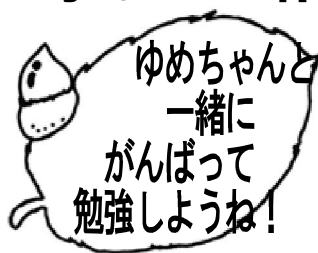 ゆめちゃんと
一緒に
がんばって
勉強しようね！